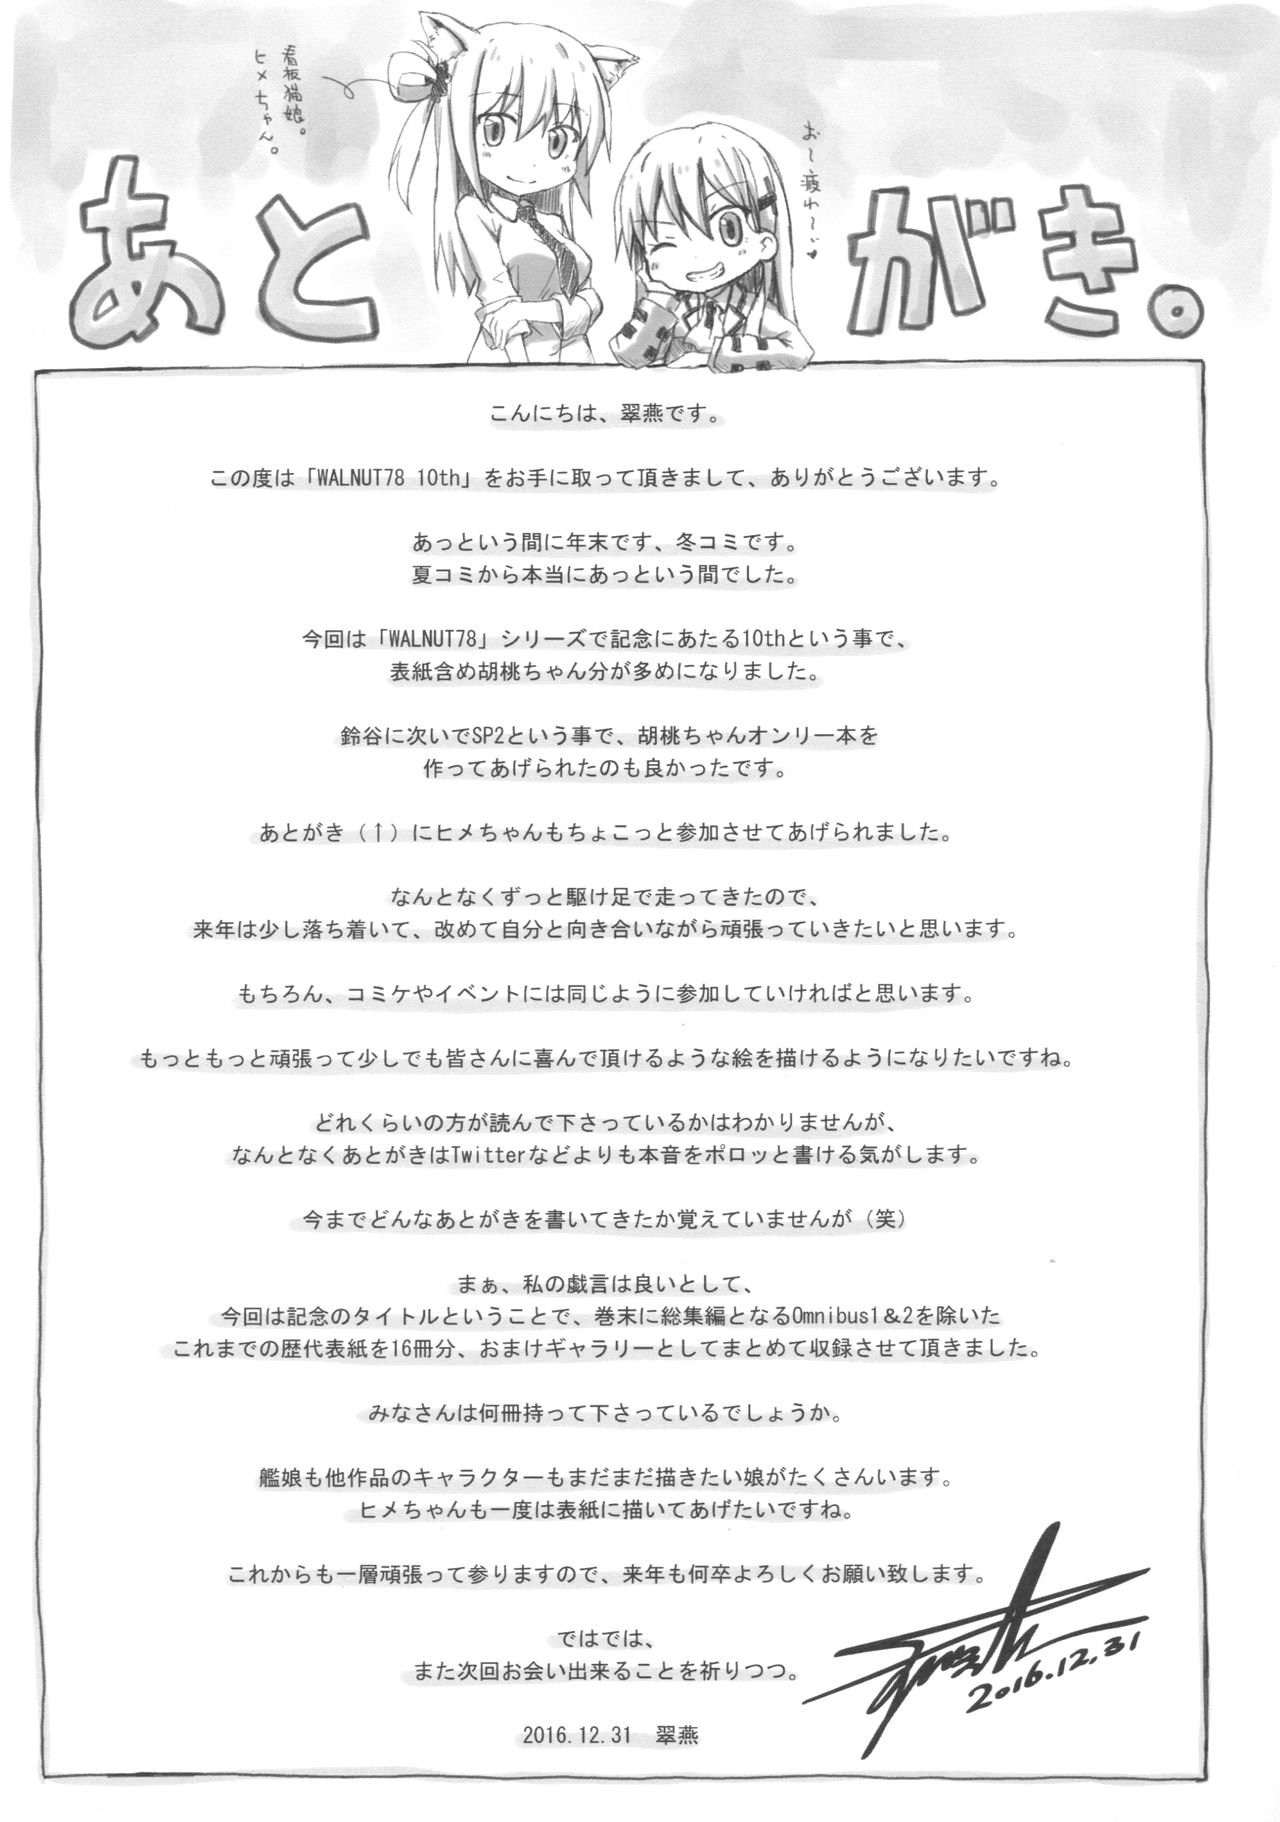 看板猫娘。
ヒメちゃん。
お～疲れ～♥
あとがき。
こんにちは、翠燕です。
この度は「WALNUT78 10th」をお手に取って頂きまして、ありがとうございます。
あっという間に年末です、冬コミです。
夏コミから本当にあっという間でした。
今回は「WALNUT78」シリーズで記念にあたる10thという事で、
表紙含め胡桃ちゃん分が多めになりました。
鈴谷に次いでSP2という事で、胡桃ちゃんオンリー本を
作ってあげられたのも良かったです。
あとがき（↑）にヒメちゃんもちょこっと参加させてあげられました。
なんとなくずっと駆け足で走ってきたので、
来年は少し落ち着いて、改めて自分と向き合いながら頑張っていきたいと思います。
もちろん、コミケやイベントには同じように参加していければと思います。
もっともっと頑張って少しでも皆さんに喜んで頂けるような絵を描けるようになりたいですね。
どれくらいの方が読んで下さっているかはわかりませんが、
なんとなくあとがきはTwitterなどよりも本音をポロッと書ける気がします。
今までどんなあとがきを書いてきたか覚えていませんが（笑）
まぁ、私の戯言は良いとして、
今回は記念のタイトルということで、巻末に総集編となるOmnibus1＆2を除いた
これまでの歴代表紙を16冊分、おまけギャラリーとしてまとめて収録させて頂きました。
みなさんは何冊持って下さっているでしょうか。
艦娘も他作品のキャラクターもまだまだ描きたい娘がたくさんいます。
ヒメちゃんも一度は表紙に描いてあげたいですね。
これからも一層頑張って参りますので、来年も何卒よろしくお願い致します。
ではでは、
また次回お会い出来ることを祈りつつ。
2016.12.31
2016.12.31　翠燕